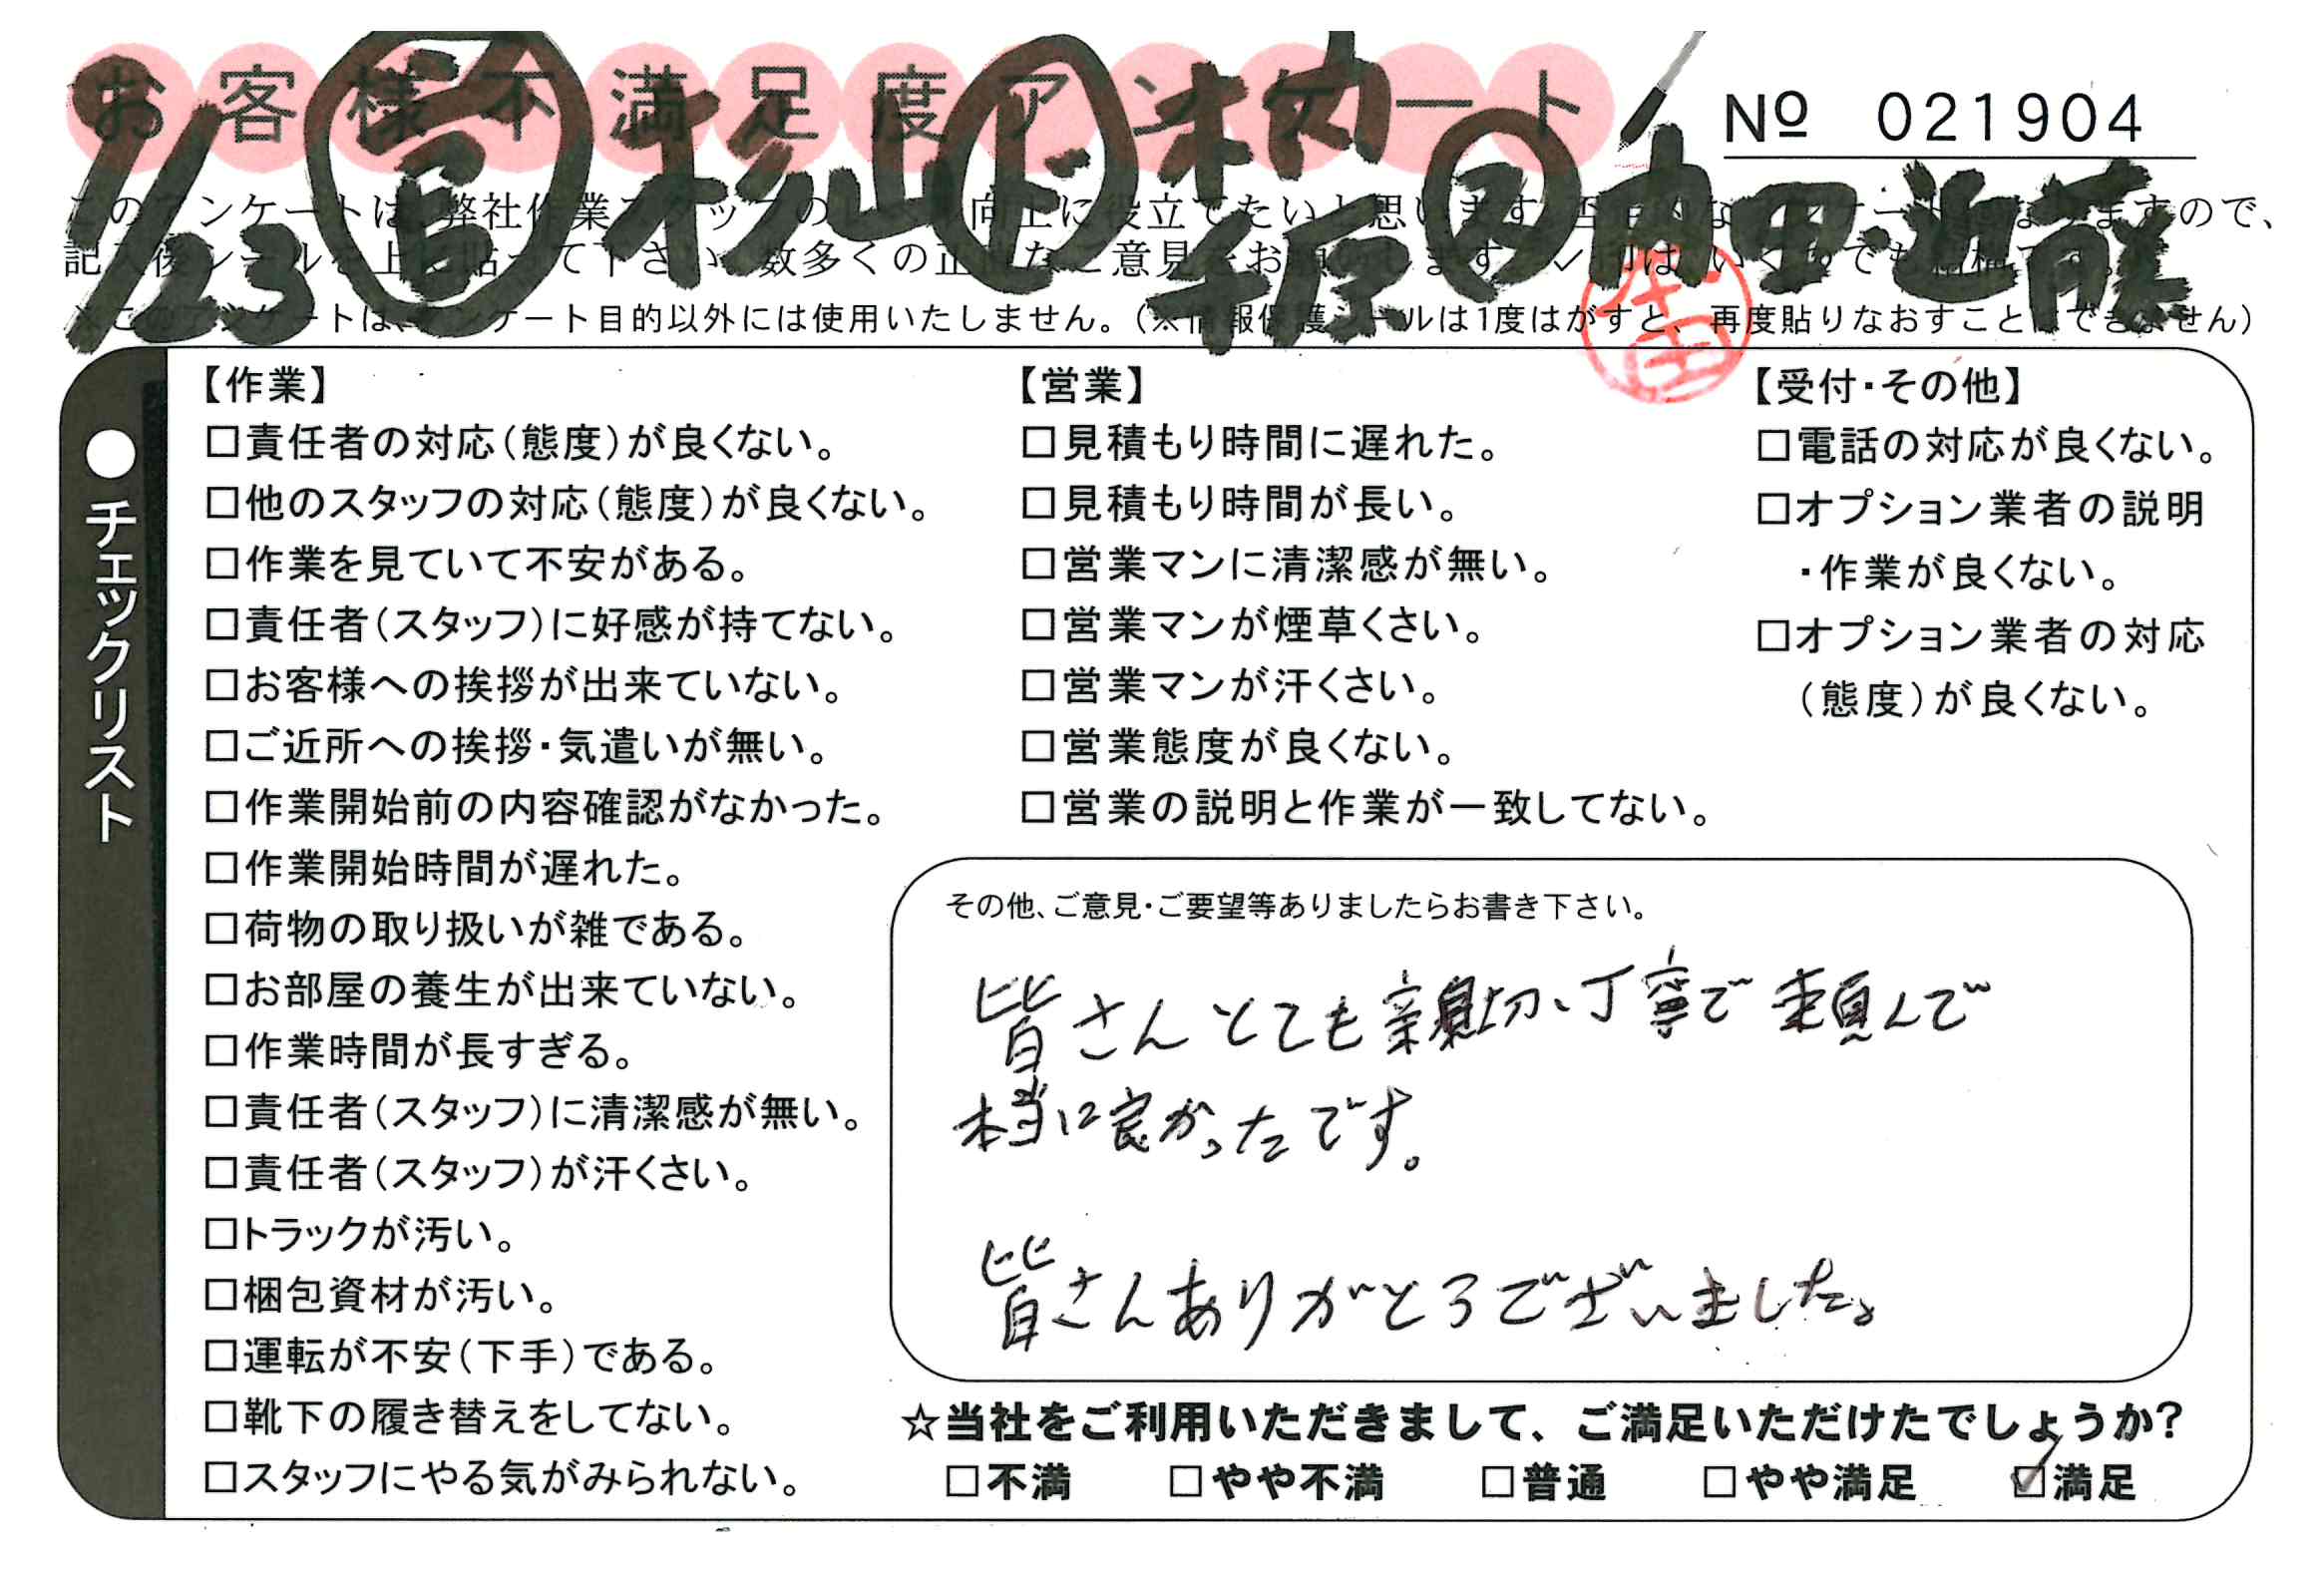 お客様不満足度アンケート
№ 021904
1/23 杉山 木内 千原 内田・近藤
※このアンケートは、アンケート目的以外には使用いたしません。(※情報保護シールは1度はがすと、再度貼りなおすことはできません)
●チェックリスト
【作業】
□責任者の対応(態度)が良くない。
□他のスタッフの対応(態度)が良くない。
□作業を見ていて不安がある。
□責任者(スタッフ)に好感が持てない。
□お客様への挨拶が出来ていない。
□ご近所への挨拶・気遣いが無い。
□作業開始前の内容確認がなかった。
□作業開始時間が遅れた。
□荷物の取り扱いが雑である。
□お部屋の養生が出来ていない。
□作業時間が長すぎる。
□責任者(スタッフ)に清潔感が無い。
□責任者(スタッフ)が汗くさい。
□トラックが汚い。
□梱包資材が汚い。
□運転が不安(下手)である。
□靴下の履き替えをしてない。
□スタッフにやる気がみられない。
【営業】
□見積もり時間に遅れた。
□見積もり時間が長い。
□営業マンに清潔感が無い。
□営業マンが煙草くさい。
□営業マンが汗くさい。
□営業態度が良くない。
□営業の説明と作業が一致してない。
【受付・その他】
□電話の対応が良くない。
□オプション業者の説明
・作業が良くない。
□オプション業者の対応
(態度)が良くない。
その他、ご意見・ご要望等ありましたらお書き下さい。
皆さんとても親切、丁寧で頼んで
本当に良かったです。
皆さんありがとうございました。
☆当社をご利用いただきまして、ご満足いただけたでしょうか?
□不満 □やや不満 □普通 □やや満足 ☑満足